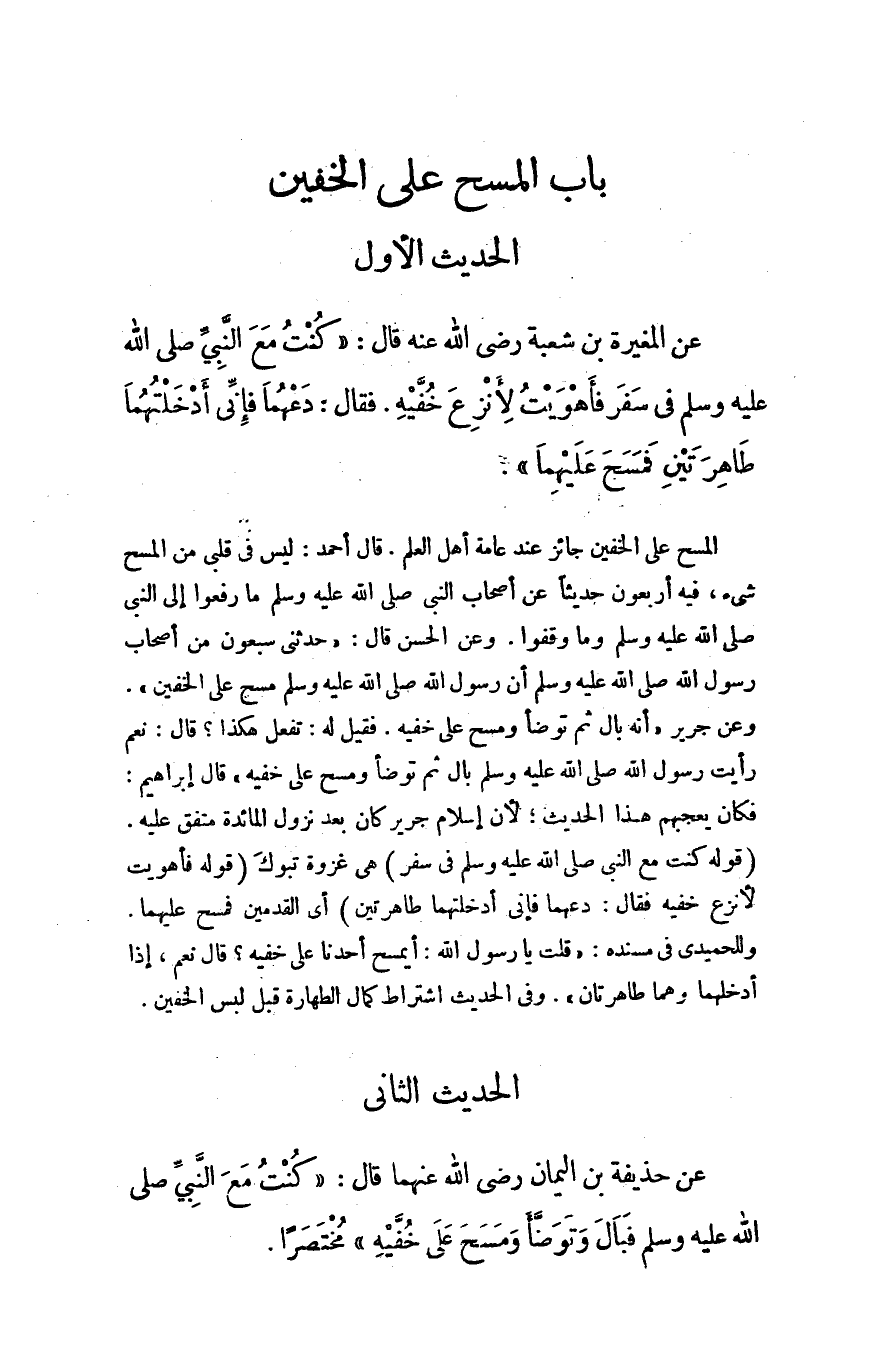 باب المسح على الخفين
الحديث الأول
عن المغيرة بن شعبة رضى الله عنه قال : « كُنْتُ مَعَ النَّبِيِّ صلى الله
عليه وسلم فى سَفَرَ فأَهْوَيْتُ لِأَنْزِعَ خُفَّيْهِ . فقال : دَعْهُمَا فإِنِّى أَدْخَلْتُهُمَا
طَاهِرَتَيْنِ فَمَسَحَ عَلَيْهِمَا » .
المسح على الخفين جائز عند عامة أهل العلم . قال أحمد : ليس فى قلبى من المسح
شىء ، فيه أربعون حديثاً عن أصحاب النبى صلى الله عليه وسلم ما رفعوا إلى النبى
صلى الله عليه وسلم وما وقفوا . وعن الحسن قال : « حدثنى سبعون من أصحاب
رسول الله صلى الله عليه وسلم أن رسول الله صلى الله عليه وسلم مسح على الخفين » .
وعن جرير « أنه بال ثم توضأ ومسح على خفيه . فقيل له : تفعل هكذا ؟ قال : نعم
رأيت رسول الله صلى الله عليه وسلم بال ثم توضأ ومسح على خفيه » قال إبراهيم :
فكان يعجبهم هذا الحديث ؛ لأن إسلام جرير كان بعد نزول المائدة متفق عليه .
( قوله كنت مع النبى صلى الله عليه وسلم فى سفر ) هى غزوة تبوك ( قوله فأهويت
لأنزع خفيه فقال : دعهما فإنى أدخلتهما طاهرتين ) أى القدمين فمسح عليهما .
وللحميدى فى مسنده : « قلت يا رسول الله : أيمسح أحدنا على خفيه ؟ قال نعم ، إذا
أدخلهما وهما طاهرتان » . وفى الحديث اشتراط كمال الطهارة قبل لبس الخفين .
الحديث الثانى
عن حذيفة بن اليمان رضى الله عنهما قال : « كُنْتُ مَعَ النَّبِيِّ صلى
الله عليه وسلم فَبَالَ وَتَوَضَّأَ وَمَسَحَ عَلَى خُفَّيْهِ » مُخْتَصَرًا .